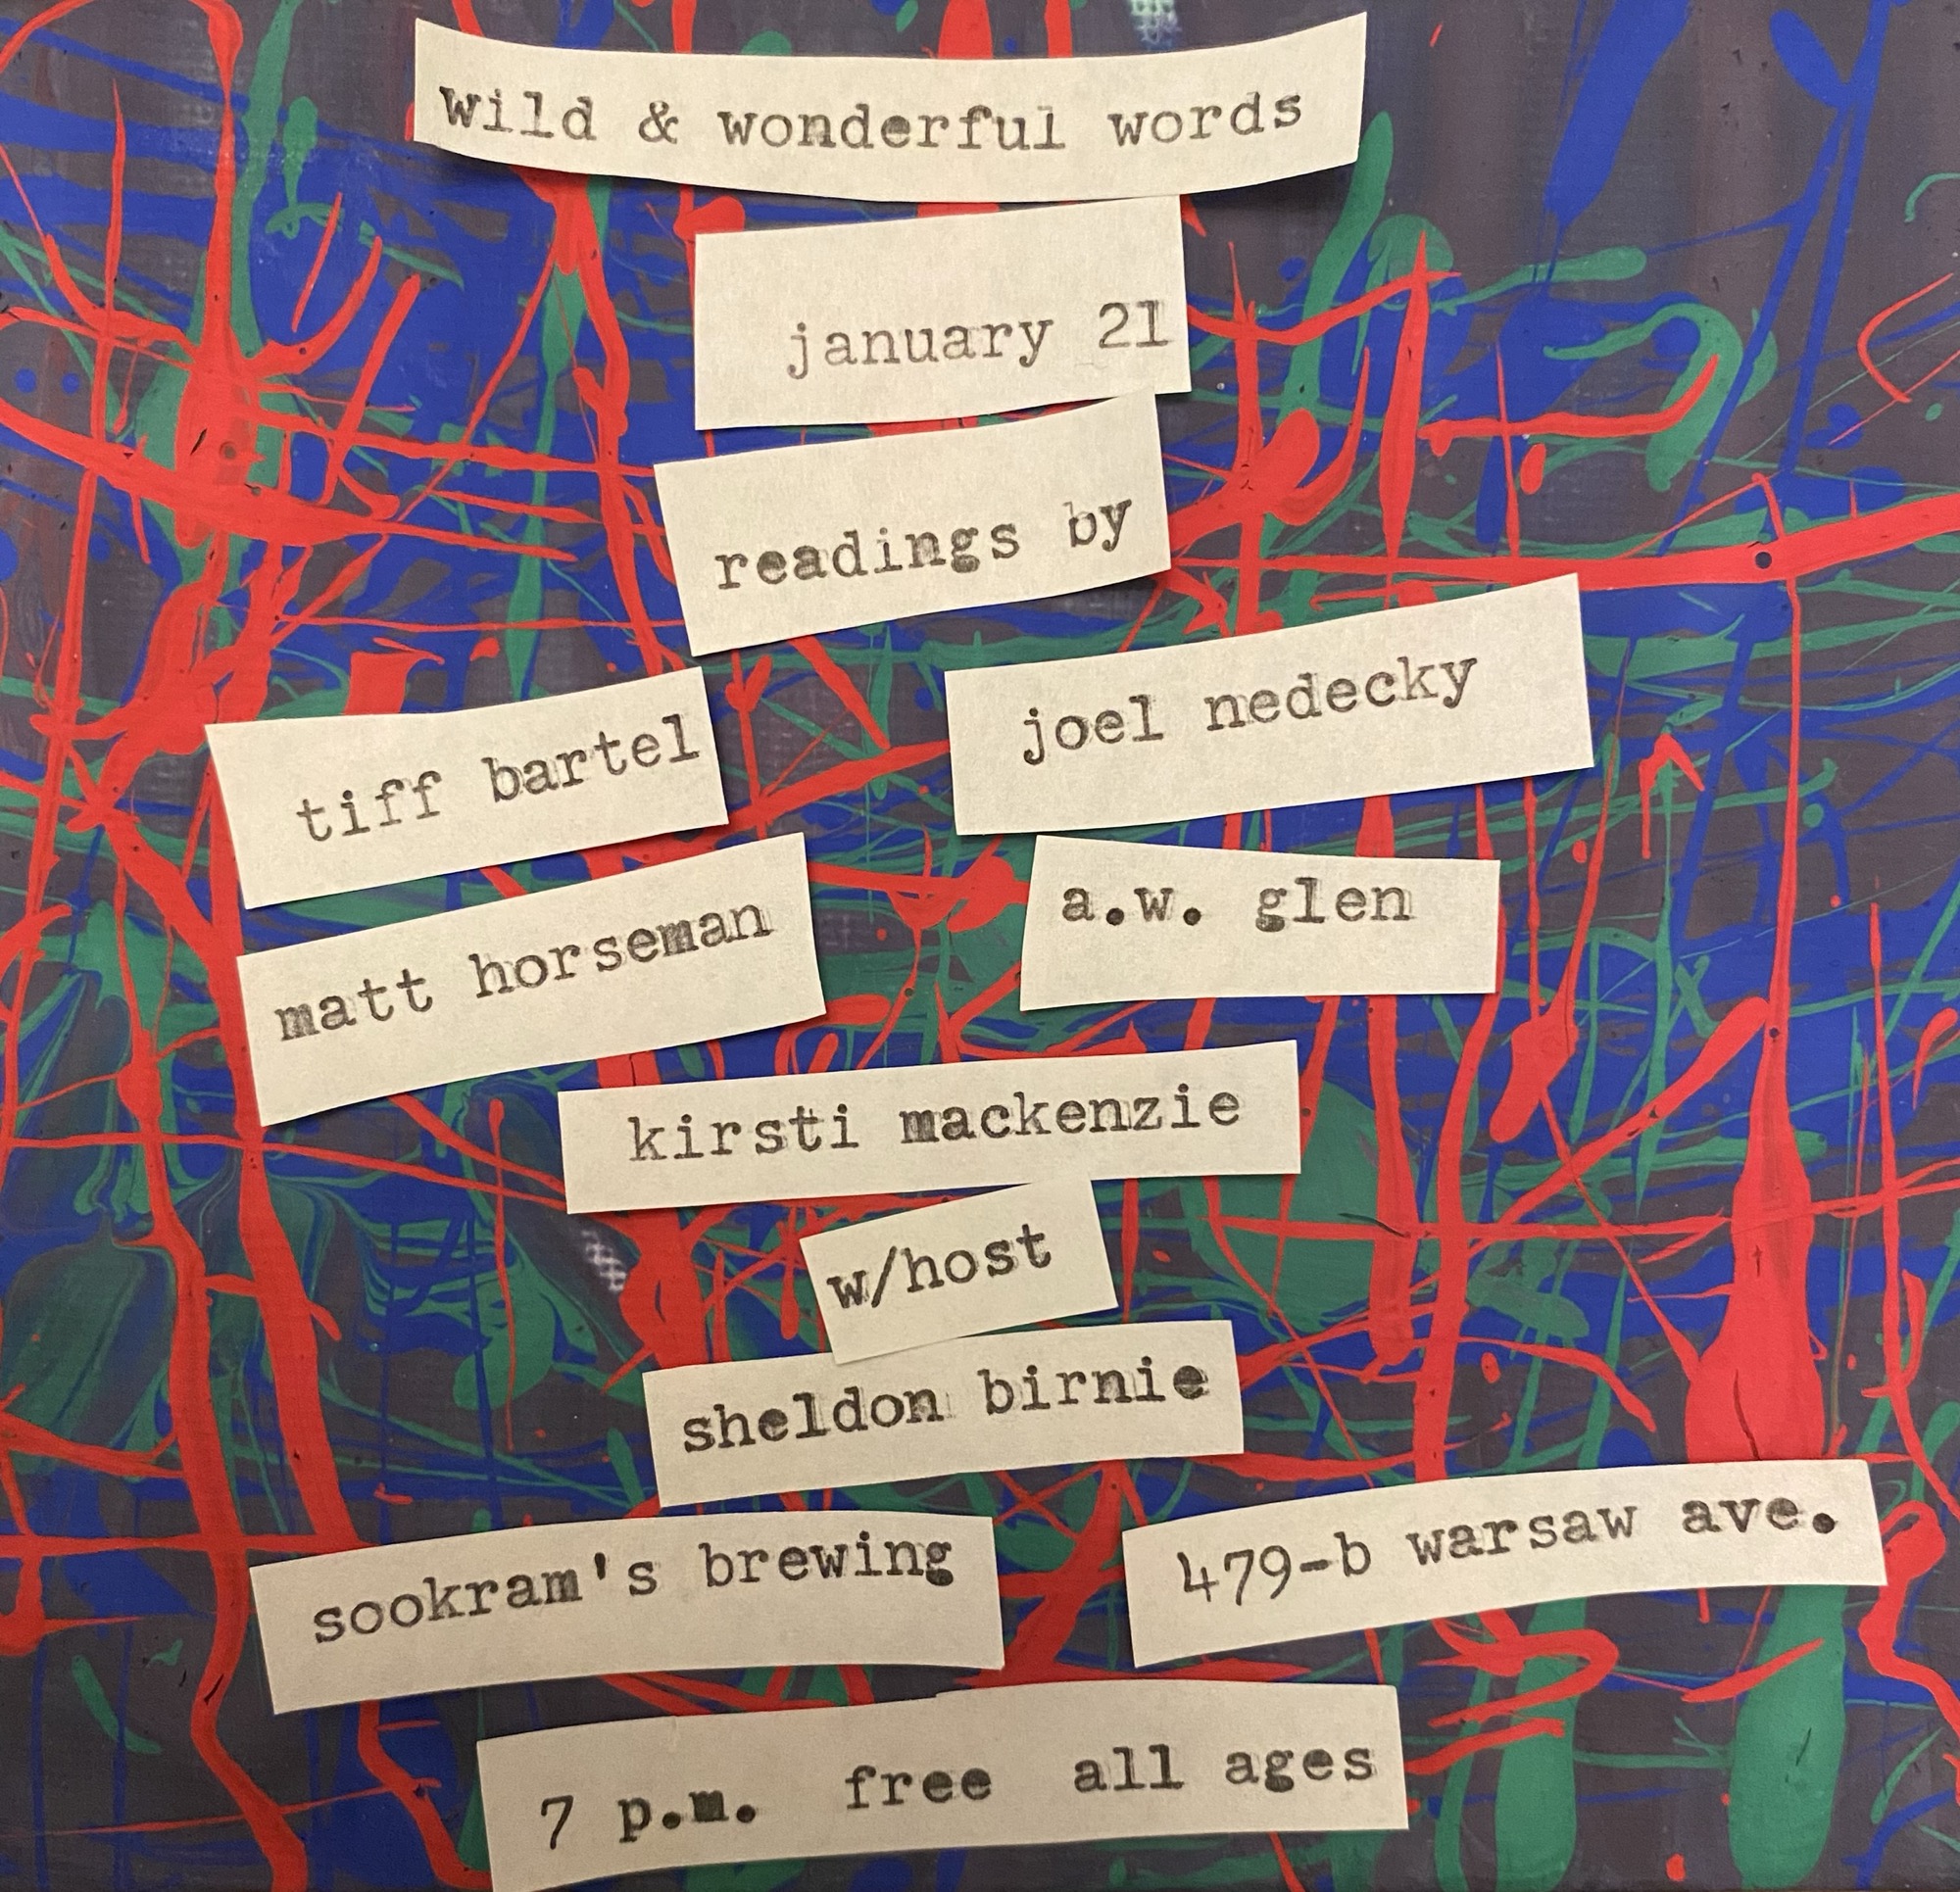 wild & wonderful words
january 21
readings by
tiff bartel
joel nedecky
matt horseman
a.w. glen
kirsti mackenzie
w/host
sheldon birnie
sookram's brewing
479-b warsaw ave.
7 p.m. free all ages